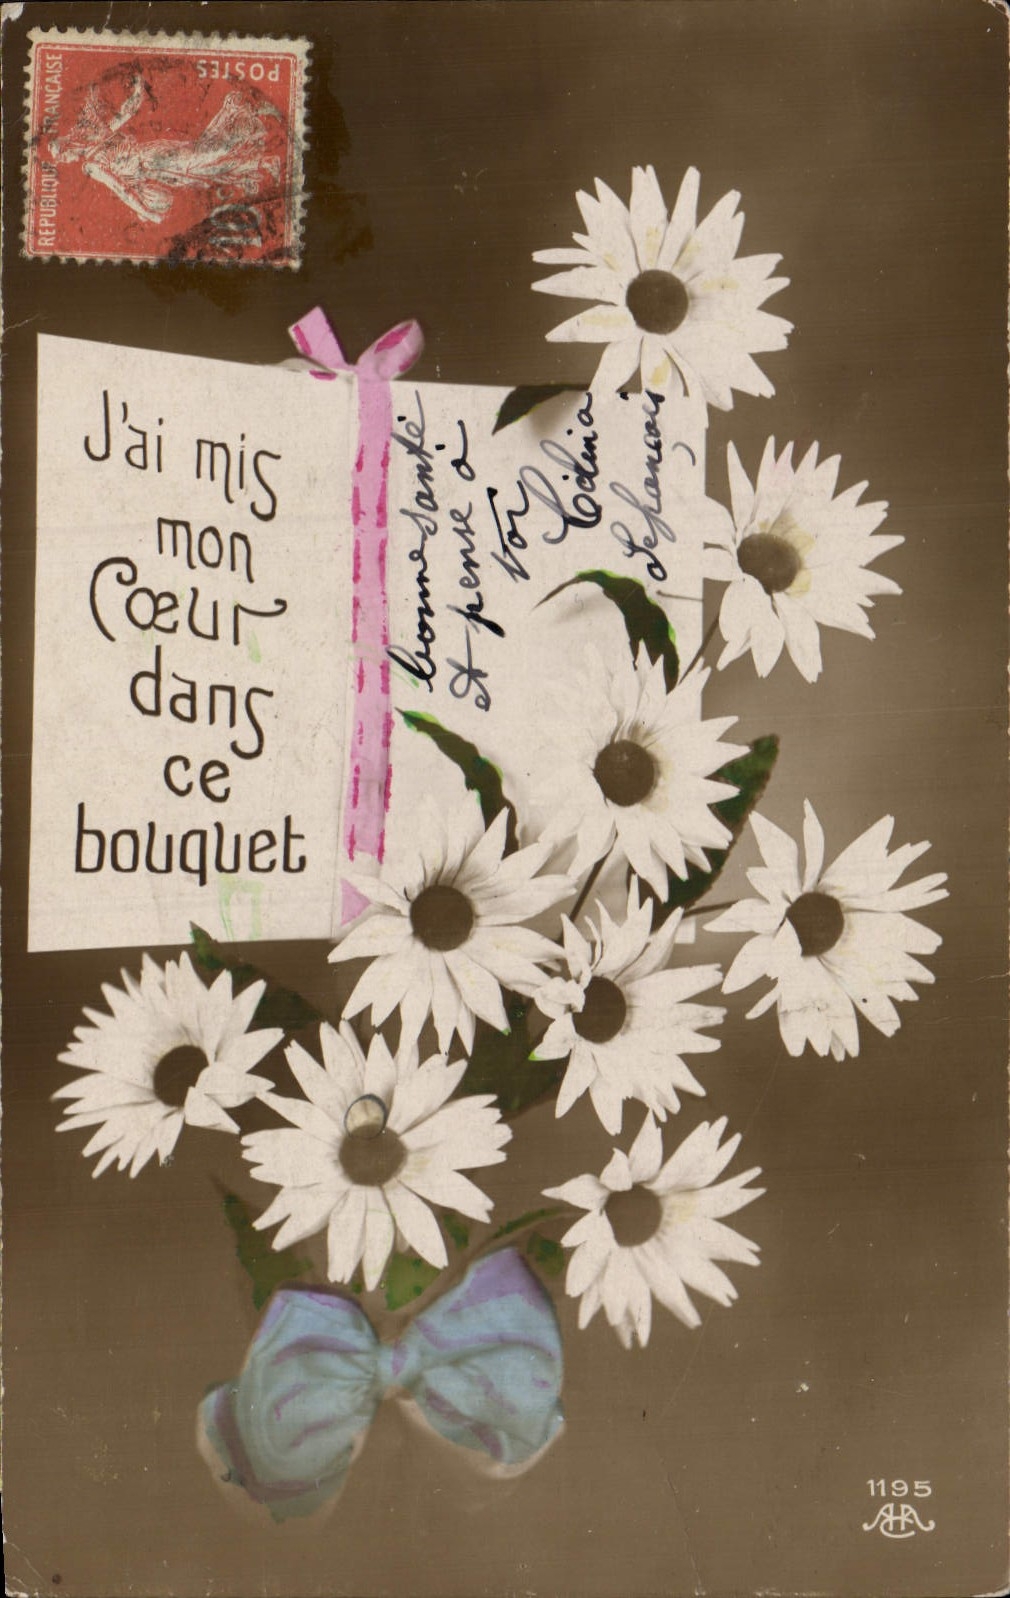 REPUBLIQUE FRANÇAISE
POSTES
10c
J'ai mis
mon
Cœur
dans
ce
bouquet
bonne santé
et pense a
toi
Célina
Lefrançois
1195